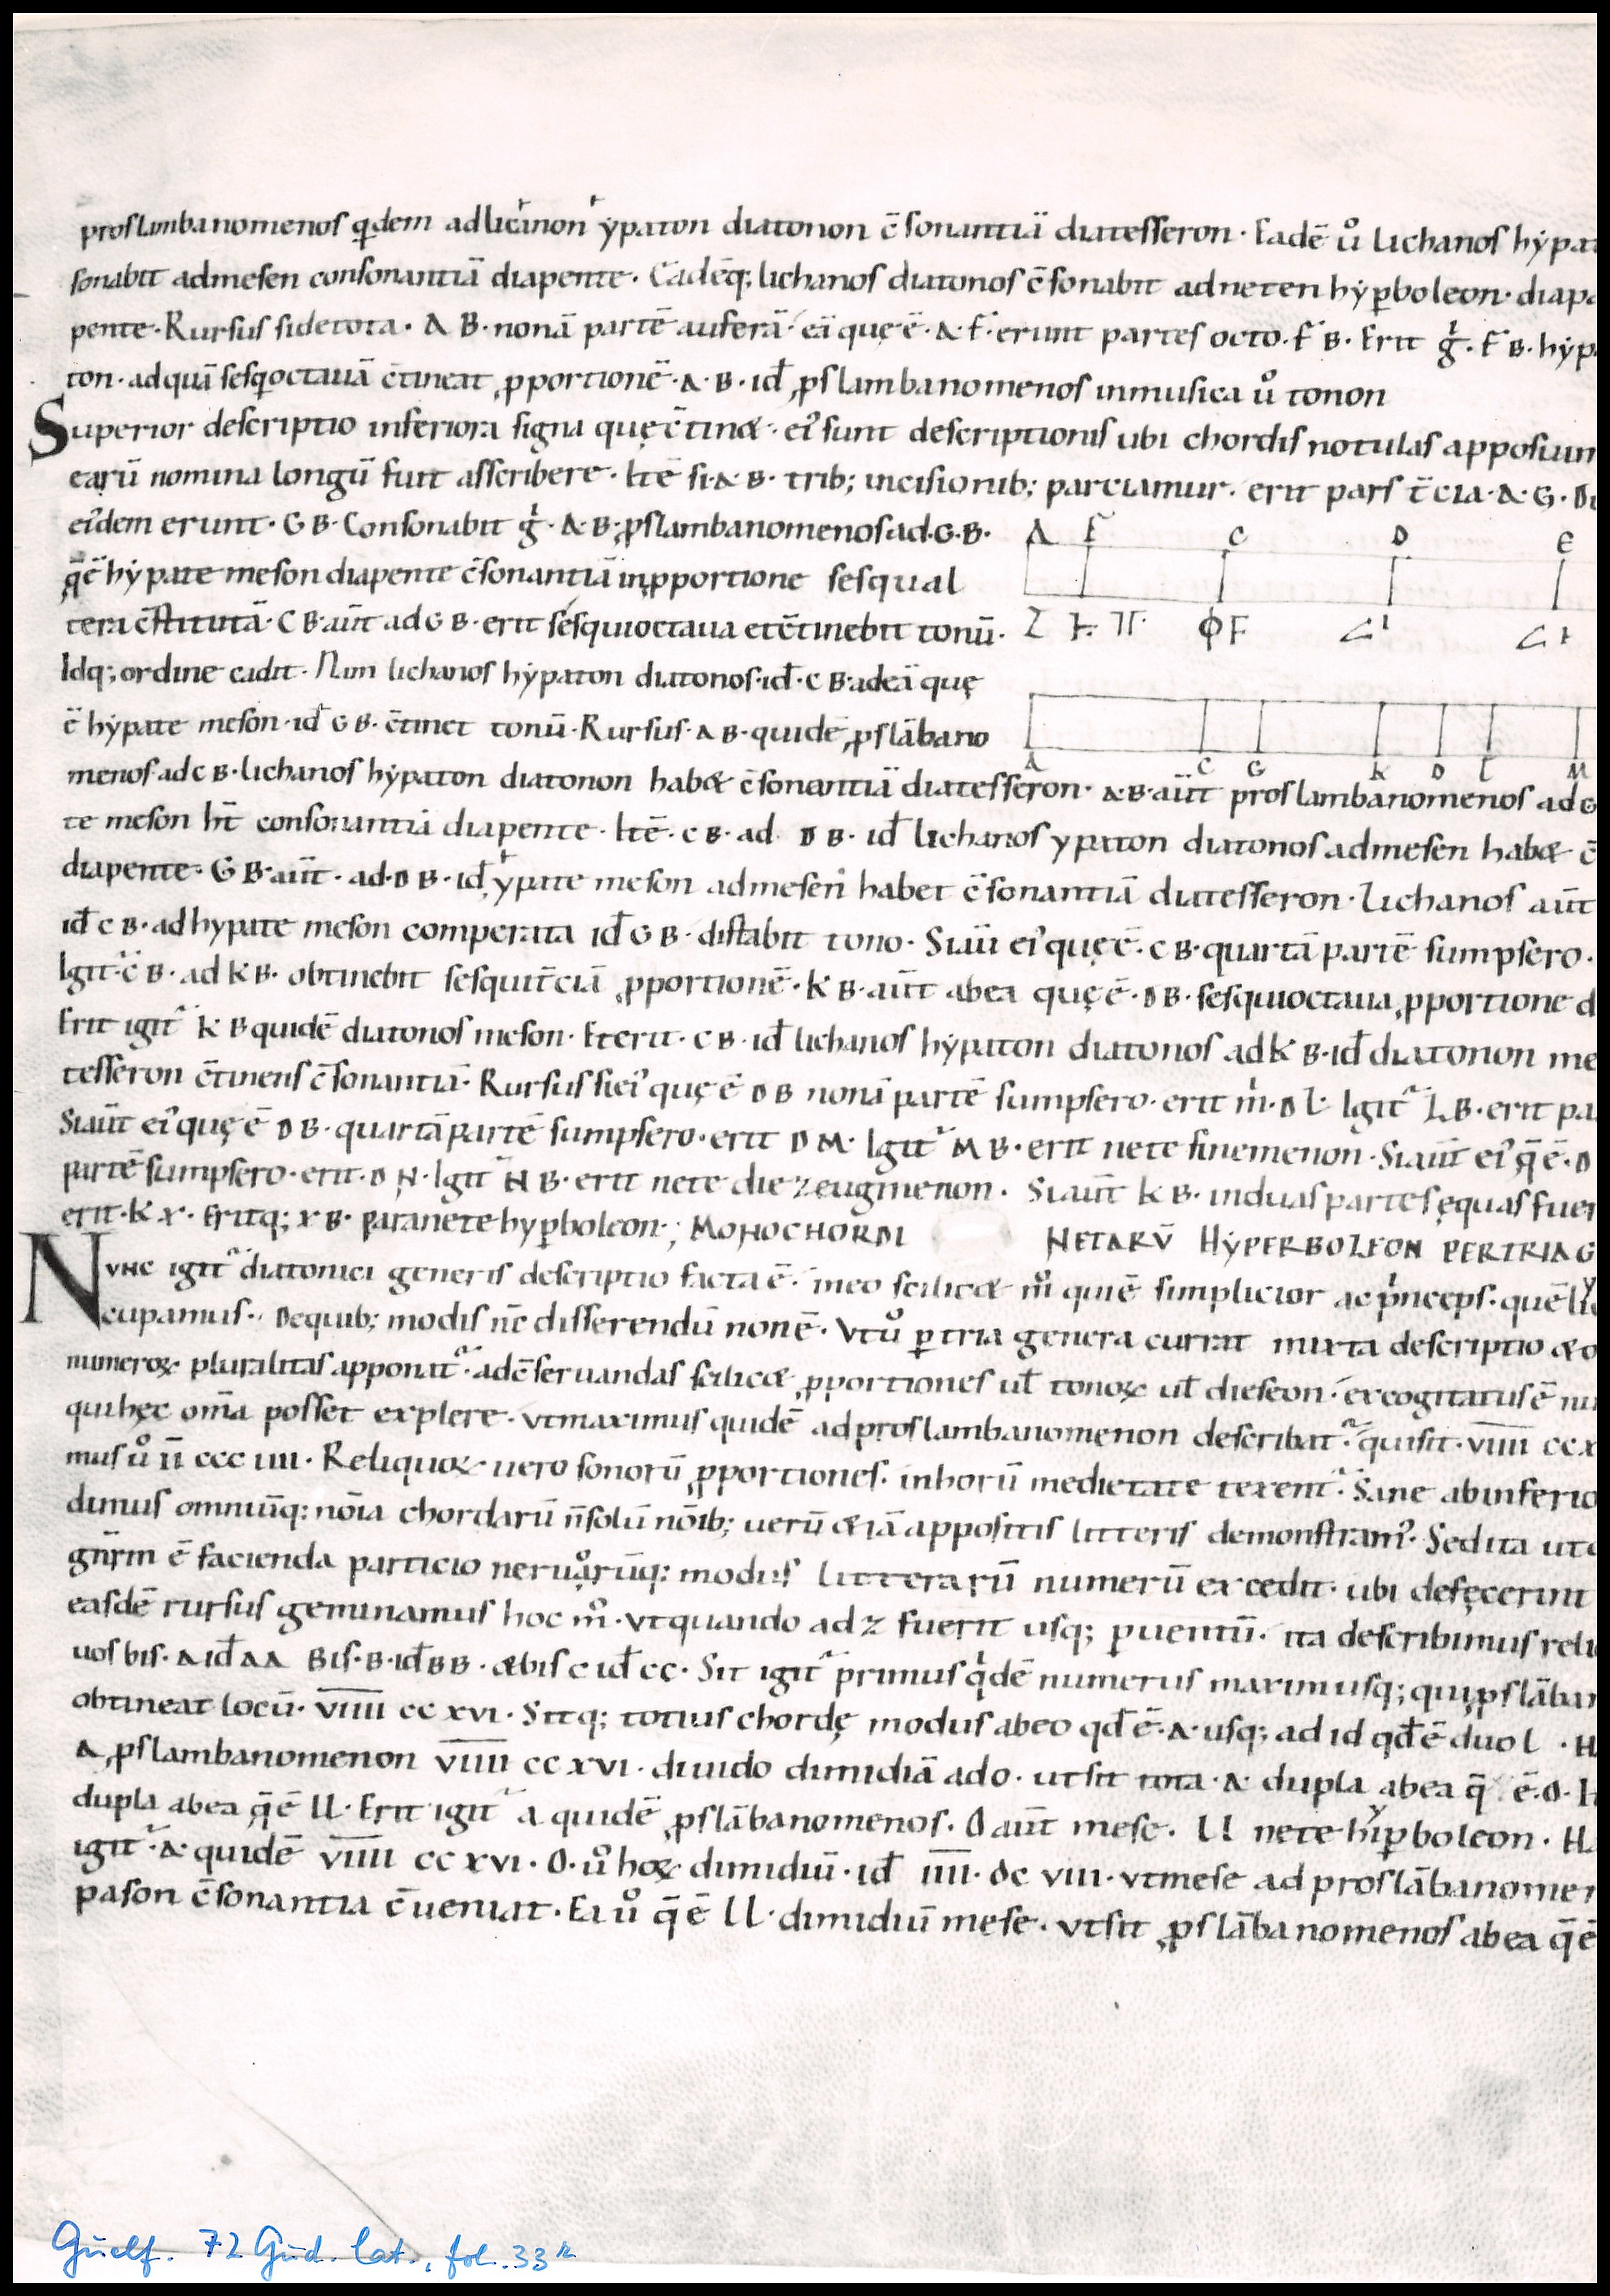 proslambanomenos qdem ad licanon ẏpaton diatonon c̄sonantiā diatesseron · Eadē uͦ lichanos hẏpat
sonabit admesen consonantiā diapente · Eadēq; lichanos diatonos c̄sonabit ad neten hẏp̄boleon · diapa
pente · Rursus side tota · A B · nonā partē auferā · eā quę ē · A · F · erunt partes octo · F B · Erit g̊ · F B · hẏp
ton · ad quā sesq octauā c̄tineat ꝓportionē · A · B · id̄ ꝓslambanomenos in musica uͦ tonon
Superior descriptio inferiora signa quę c̄tinet · ei᷒ sunt descriptionis ubi chordis notulas apposuim
earū nomina longū fuit asscribere · Itē si · A · B · trib; incisionib; partiamur · erit pars t̄cia · A · G · Du
eidem erunt · G B · Consonabit g̊ · A · B · ꝓslambanomenos ad · G · B ·
q̄ ē hẏpate meson diapente c̄sonantiā in ꝓportione sesqual
tera c̄stitutā · C B · aūt ad G B · erit sesquioctaua et c̄tinebit tonū ·
Idq; ordine cadit · Nam lichanos hẏpaton diatonos · id̄ · C B · ad eā quę
ē hẏpate meson · id̄ G B · c̄tinet tonū · Rursus · A B · quidē ꝓslābano
A F C D E
Z Ⱶ · Π · Φ F
A C G K D L M
menos ad C B · lichanos hẏpaton diatonon habet c̄sonantiā diatesseron · A · B · aūt proslambanomenos ad G
te meson h̄t consonantiā diapente · Itē · C B · ad D B · id̄ lichanos ypaton diatonos admesen habet c̄
diapente · G B · aūt · ad · D B · id̄ ẏpate meson admesen habet c̄sonantiā diatesseron · Lichanos aūt
id̄ C B · ad hypate meson comperata id̄ G B · distabit tono · Si aūt ei᷒ quę ē · C B · quartā partē sumpsero ·
Igit᷑ C B · ad K B · obtinebit sesquit̄ciā ꝓportionē · K B · aūt ab ea quę ē · D B · sesquioctaua ꝓportione d
Erit igit᷑ K B quidē diatonos meson · Et erit · C B · id̄ lichanos hẏpaton diatonos ad K B · id̄ diatonon me
tesseron c̄tinens c̄sonantiā · Rursus si ei᷒ quę ē D B nonā partē sumpsero · erit m̊ · D L · Igit᷑ L B · erit pa
Si aūt ei᷒ quę ē D B · quartā partē sumpsero · erit D M · Igit᷑ M B · erit nete sinemenon · Si aūt ei᷒ q̄ ē · D
partē sumpsero · erit · D N · Igit᷑ N B · erit nete diezeugmenon · Si aūt K B · in duas partes ęquas fuer
erit · K X · Eritq; X B · paranete hyp̄boleon ·; MONOCHORDI NETARV̄ HẎPERBOLEON PER TRIA G
NVNC igit᷑ diatonici generis descriptio facta ē · in eo scilicet m̊ qui ē simplicior ac p̊nceps · quē
cupamus · De quib; modis n̄c disserendū non ē · Vt uͦ p̄ tria genera currat mixta descriptio et o
numeroꝝ pluralitas apponat᷑ · ad c̄seruandas scilicet ꝓportiones ul̄ tonoꝝ ul̄ dieseon · excogitatus ē nu
qui hęc om̄a posset explere · vt maximus quidē ad proslambanomenon describat᷑ · qui sit · V̄I̅I̅I̅I̅ CC X
mus uͦ I̅I̅ CCC IIII · Reliquoꝝ uero sonorū ꝓportiones · in horū medietate texent᷑ · Sane ab inferio
dimus omniūq; nōia chordarū n̄ solū nōib; uerū etiā appositis litteris demonstram᷒ · Sed ita ut
gn̄rm ē facienda particio neruoͦrūq; modus litterarū numerū excedit · ubi defęcerint
easdē rursus geminamus hoc m̊ · vt quando ad Z fuerit usq; p̄uentū · ita describimus reli
uos bis · A id̄ AA Bis · B · id̄ BB · et bis C id̄ CC · Sit igit᷑ primus q̊dē numerus maximusq; qui ꝓslāban
obtineat locū · V̅I̅I̅I̅I̅ CC XVI · Sitq; totius chordę modus ab eo qd̄ ē · A · usq; ad id qd̄ ē duo l · H
A ꝓslambanomenon V̅I̅I̅I̅I̅ CC XVI · diuido dimidiā ad O · ut sit tota · A · dupla ab ea q̄ ē · O · I
dupla ab ea q̄ ē LL · Erit igit᷑ a quidē ꝓslābanomenos · O aūt mese · LL nete hẏp̄boleon · H
igit᷑ · A · quidē V̅I̅I̅I̅I̅ CC XVI · O · uͦ hoꝝ dimidiū · id̄ I̅I̅I̅I̅ · DC VIII · vt mese ad proslābanomen
pason c̄sonantia c̄ueniat · Ea uͦ q̄ ē LL · dimidiū mese · vt sit ꝓslābanomenos ab ea q̄ ē
Guelf. 72 Gud. lat., fol. 33r